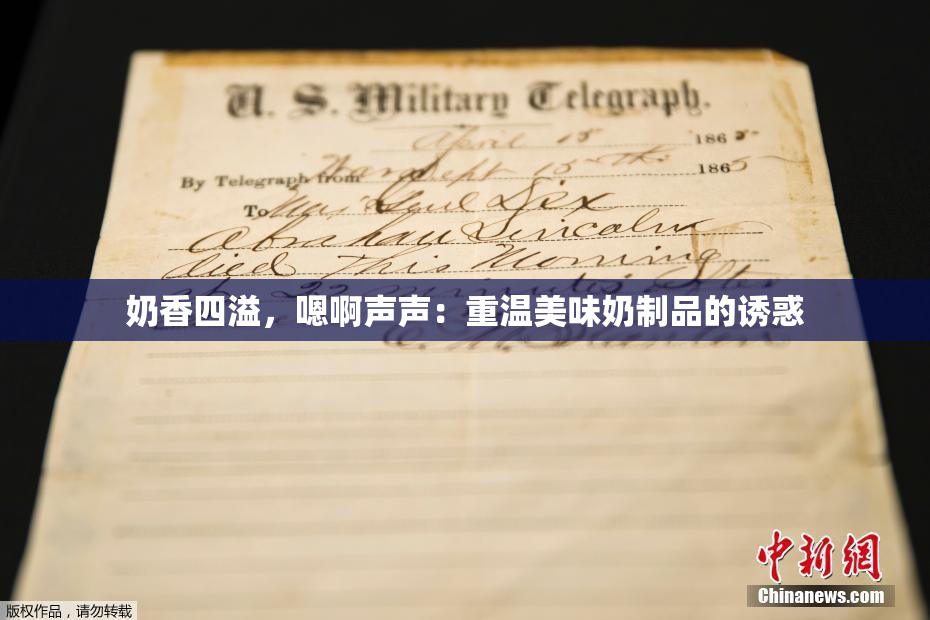 U. S. Military Telegraph.
April 15 1865
By Telegraph from War Dept 15th 1865
To Maj Genl Dix
Abraham Lincoln
died This Morning
at 22 minutes after
奶香四溢，嗯啊声声：重温美味奶制品的诱惑
中新网
Chinanews.com
版权作品，请勿转载